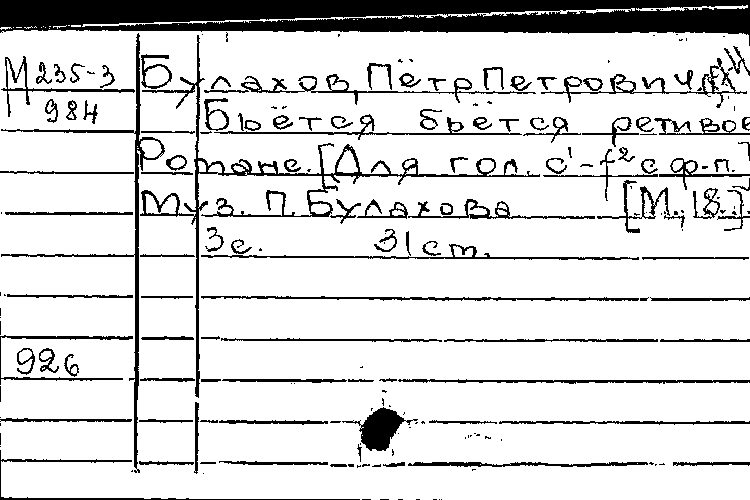 М 235-3
984
Булахов, Пётр Петрович
Бьётся бьётся ретивое
Романс. [Для гол. c¹-f² с ф-п.]
Муз. П. Булахова [М., 18..].
3 с. 31 ст.
926